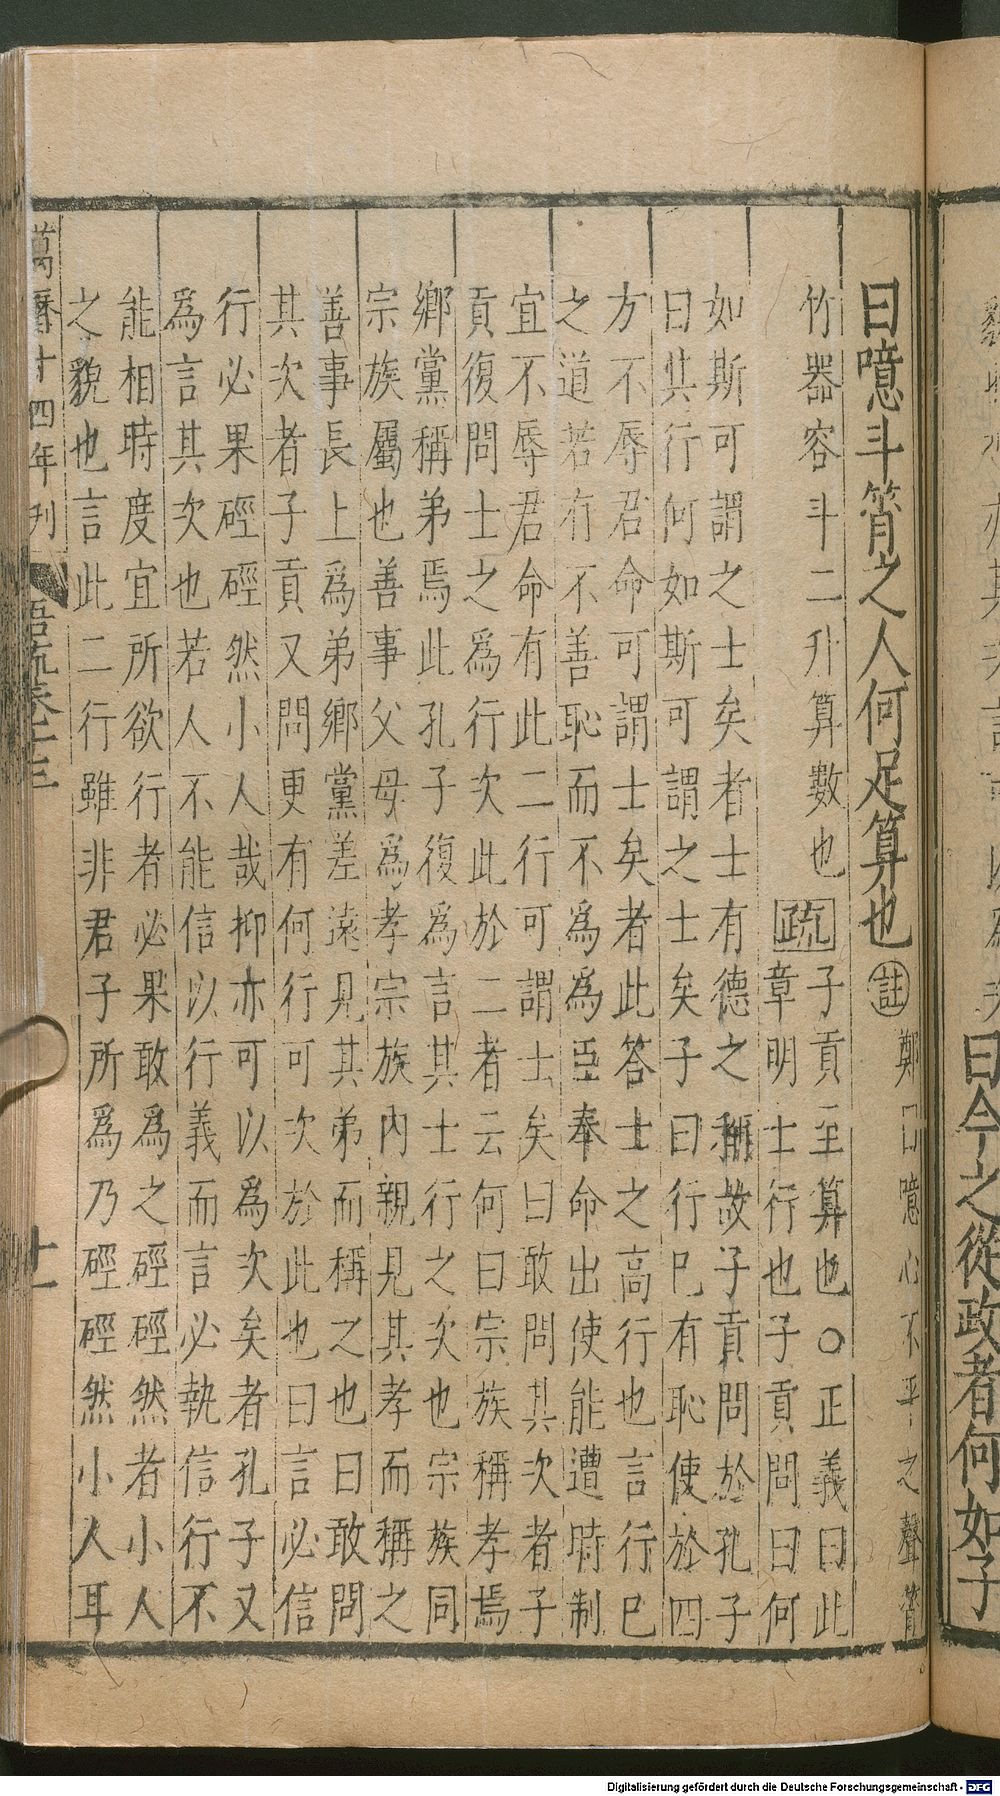 曰今之從政者何如子
曰噫斗筲之人何足算也
註
鄭曰噫心不平之聲筲
竹器容斗二升算數也
疏
子貢至算也〇正義曰此
章明士行也子貢問曰何
如斯可謂之士矣者士有德之稱故子貢問於孔子
曰其行何如斯可謂之士矣子曰行已有恥使於四
方不辱君命可謂士矣者此答士之高行也言行已
之道若有不善恥而不為為臣奉命出使能遭時制
宜不辱君命有此二行可謂士矣曰敢問其次者子
貢復問士之為行次此於二者云何曰宗族稱孝焉
鄉黨稱弟焉此孔子復為言其士行之次也宗族同
宗族屬也善事父母為孝宗族內親見其孝而稱之
善事長上為弟鄉黨差遠見其弟而稱之也曰敢問
其次者子貢又問更有何行可次於此也曰言必信
行必果硜硜然小人哉抑亦可以為次矣者孔子又
為言其次也若人不能信以行義而言必執信行不
能相時度宜所欲行者必果敢為之硜硜然者小人
之貌也言此二行雖非君子所為乃硜硜然小人耳
萬曆十四年刊
語疏卷十三
十一
Digitalisierung gefördert durch die Deutsche Forschungsgemeinschaft - DFG